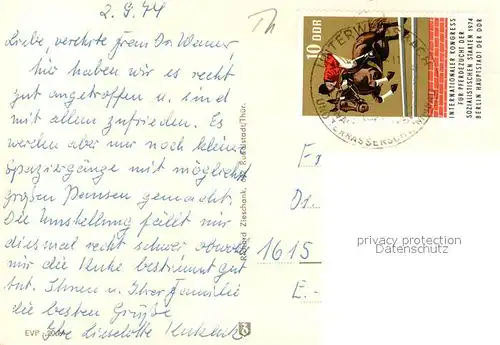 2.9.74
Liebe, verehrte Frau Dr. Wanner,
hier haben wir es recht
gut angetroffen u. sind
mit allem zufrieden. Es
werden aber nur noch kleine
Spaziergänge mit möglichst
großen Pausen gemacht.
Die Umstellung fällt mir
diesmal recht schwer obwohl
mir die Ruhe bestimmt gut
tut. Ihnen u. Ihrer Familie
die besten Grüße
Ihre Lieselotte
EVP
Richard Zieschank, Rudolstadt/Thür.
Th
10 DDR
INTERNATIONALER KONGRESS
FÜR PFERDEZUCHT DER
SOZIALISTISCHEN STAATEN 1974
BERLIN HAUPTSTADT DER DDR
Fr
Dr.
1615
E.-
privacy protection
Datenschutz